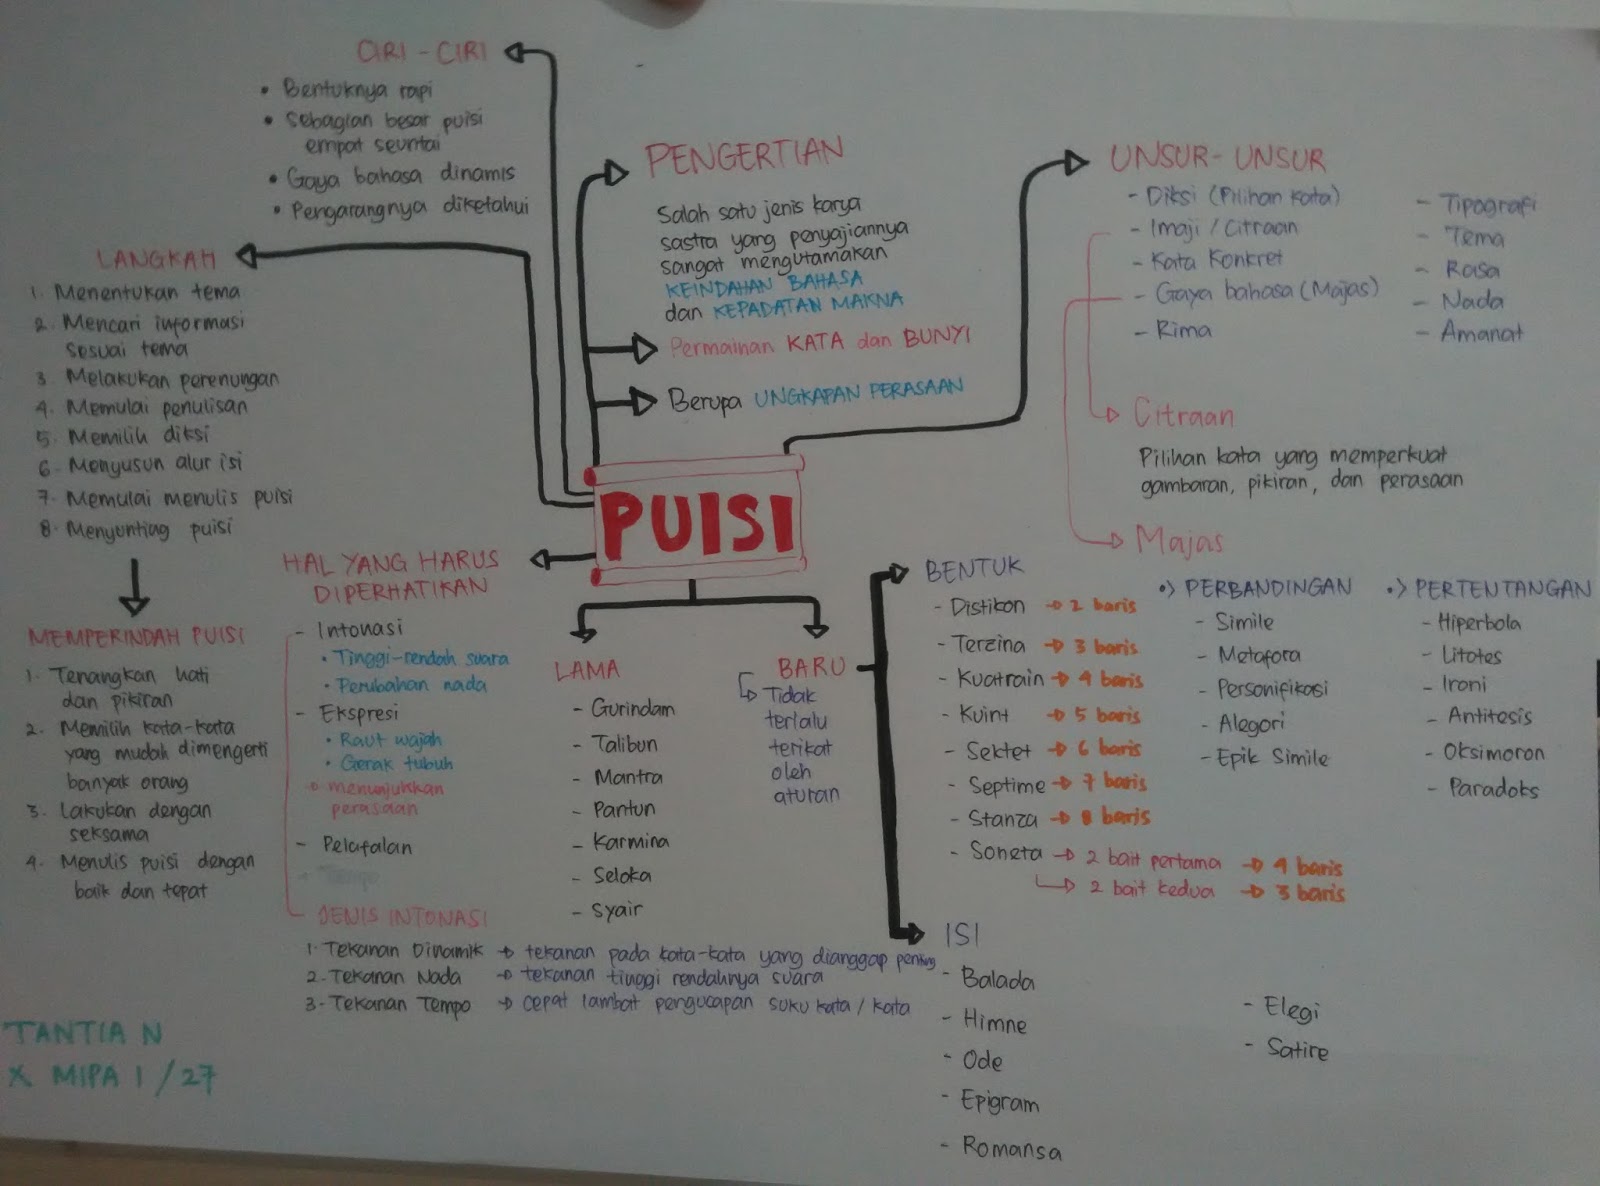 CIRI - CIRI
• Bentuknya rapi
• Sebagian besar puisi
empat seuntai
• Gaya bahasa dinamis
• Pengarangnya diketahui
LANGKAH
1. Menentukan tema
2. Mencari informasi
sesuai tema
3. Melakukan perenungan
4. Memulai penulisan
5. Memilih diksi
6. Menyusun alur isi
7. Memulai menulis puisi
8. Menyunting puisi
MEMPERINDAH PUISI
1. Tenangkan hati
dan pikiran
2. Memilih kata-kata
yang mudah dimengerti
banyak orang
3. Lakukan dengan
seksama
4. Menulis puisi dengan
baik dan tepat
PENGERTIAN
Salah satu jenis karya
sastra yang penyajiannya
sangat mengutamakan
KEINDAHAN BAHASA
dan KEPADATAN MAKNA
Permainan KATA dan BUNYI
Berupa UNGKAPAN PERASAAN
UNSUR-UNSUR
- Diksi (Pilihan Kata)
- Imaji / Citraan
- Kata Konkret
- Gaya bahasa (Majas)
- Rima
- Tipografi
- Tema
- Rasa
- Nada
- Amanat
Citraan
Pilihan kata yang memperkuat
gambaran, pikiran, dan perasaan
Majas
•> PERBANDINGAN
- Simile
- Metafora
- Personifikasi
- Alegori
- Epik Simile
•> PERTENTANGAN
- Hiperbola
- Litotes
- Ironi
- Antitesis
- Oksimoron
- Paradoks
PUISI
HAL YANG HARUS
DIPERHATIKAN
- Intonasi
• Tinggi-rendah suara
• Perubahan nada
- Ekspresi
• Raut wajah
• Gerak tubuh
→ menunjukkan
perasaan
- Pelafalan
JENIS INTONASI
1. Tekanan Dinamik → tekanan pada kata-kata yang dianggap penting
2. Tekanan Nada → tekanan tinggi rendahnya suara
3. Tekanan Tempo → cepat lambat pengucapan suku kata / kata
LAMA
- Gurindam
- Talibun
- Mantra
- Pantun
- Karmina
- Seloka
- Syair
BARU
Tidak
terlalu
terikat
oleh
aturan
BENTUK
- Distikon → 2 baris
- Terzina → 3 baris
- Kuatrain → 4 baris
- Kuint → 5 baris
- Sektet → 6 baris
- Septime → 7 baris
- Stanza → 8 baris
- Soneta → 2 bait pertama → 4 baris
→ 2 bait kedua → 3 baris
ISI
- Balada
- Himne
- Ode
- Epigram
- Romansa
- Elegi
- Satire
TANTIA N
X MIPA 1 / 27